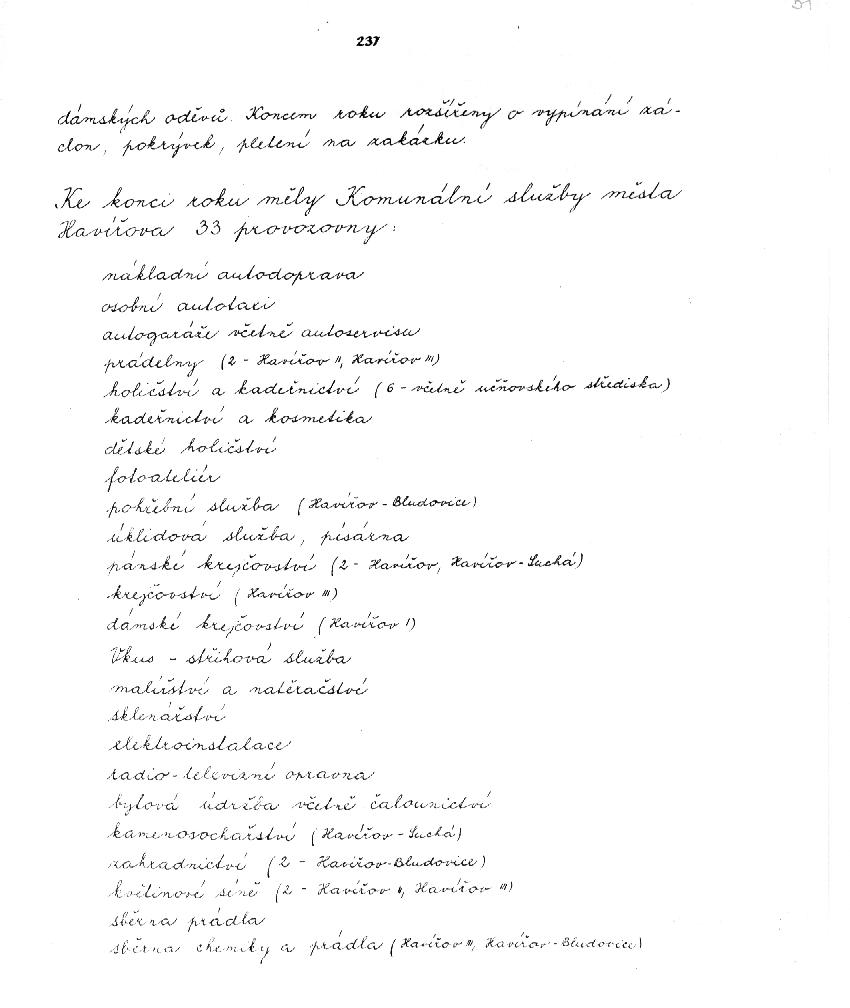 237
dámských oděvů. Koncem roku rozšířeny o vypínání zá-
clon, pokrývek, pletení na zakázku.
Ke konci roku měly Komunální služby města
Havířova 33 provozovny:
nákladní autodoprava
osobní autotaxi
autogaráže včetně autoservisu
prádelny (2 - Havířov II, Havířov III)
holičství a kadeřnictví (6 - včetně učňovského střediska)
kadeřnictví a kosmetika
dětské holičství
fotoateliér
pohřební služba (Havířov - Bludovice)
úklidová služba, písárna
pánské krejčovství (2 - Havířov, Havířov - Suchá)
krejčovství (Havířov III)
dámské krejčovství (Havířov I)
Vkus - střihová služba
malířství a natěračství
sklenářství
elektroinstalace
radio - televizní opravna
bytová údržba včetně čalounictví
kamenosochařství (Havířov - Suchá)
zahradnictví (2 - Havířov - Bludovice)
květinové síně (2 - Havířov II, Havířov III)
sběrna prádla
sběrna chemiky a prádla (Havířov III, Havířov - Bludovice)